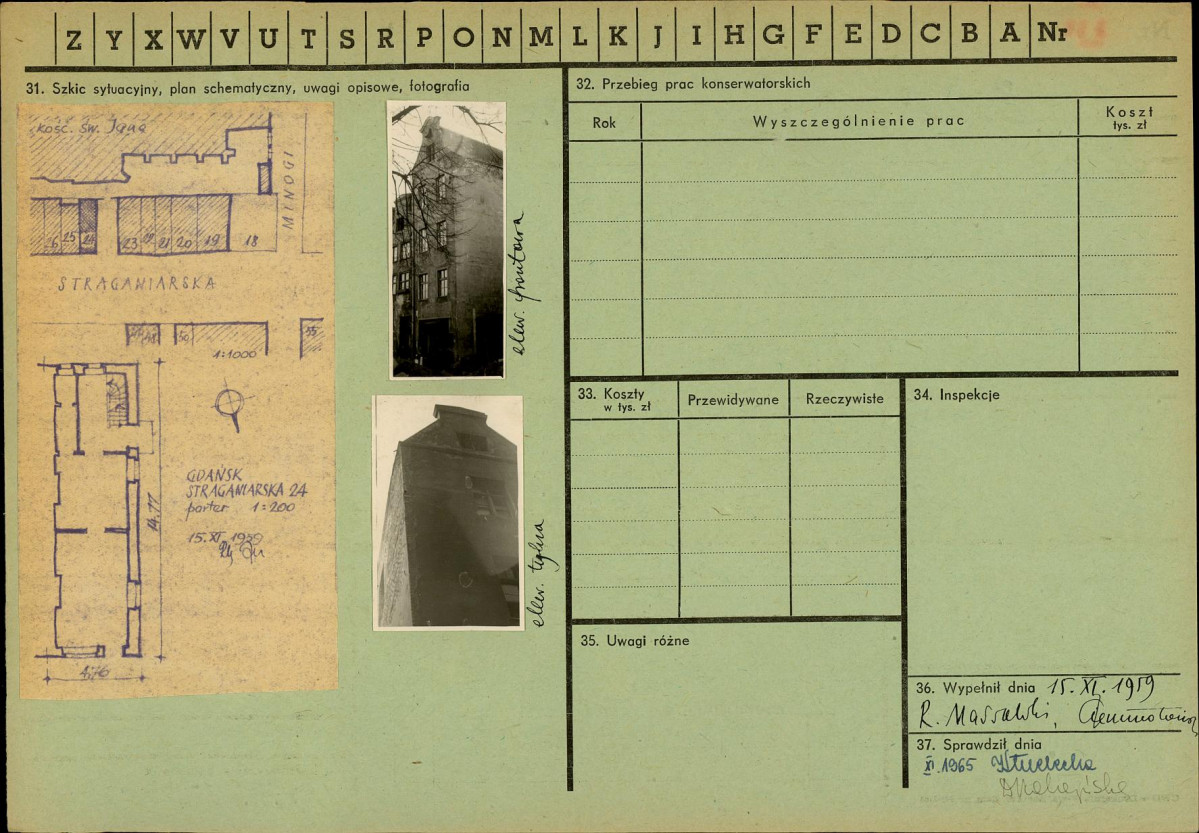 Z Y X W V U T S R P O N M L K J I H G F E D C B A Nr
31. Szkic sytuacyjny, plan schematyczny, uwagi opisowe, fotografia
kość. św. Jana
MINOGI
6 25 24 23 22 21 20 19 18
STRAGANIARSKA
50 55
1:1000
GDAŃSK
STRAGANIARSKA 24
parter 1=200
15.XI.1959
14.77
4.76
elew. frontowa
elew. tylna
32. Przebieg prac konserwatorskich
Rok
Wyszczególnienie prac
Koszt
tys. zł
33. Koszty
w tys. zł
Przewidywane
Rzeczywiste
34. Inspekcje
35. Uwagi różne
36. Wypełnił dnia 15.XI.1959
R. Massalski,
37. Sprawdził dnia
XI.1965